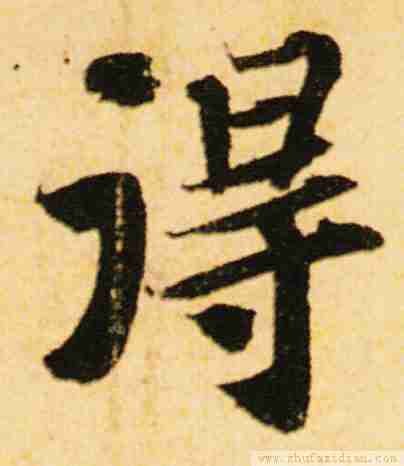 得
www.shufazidian.com